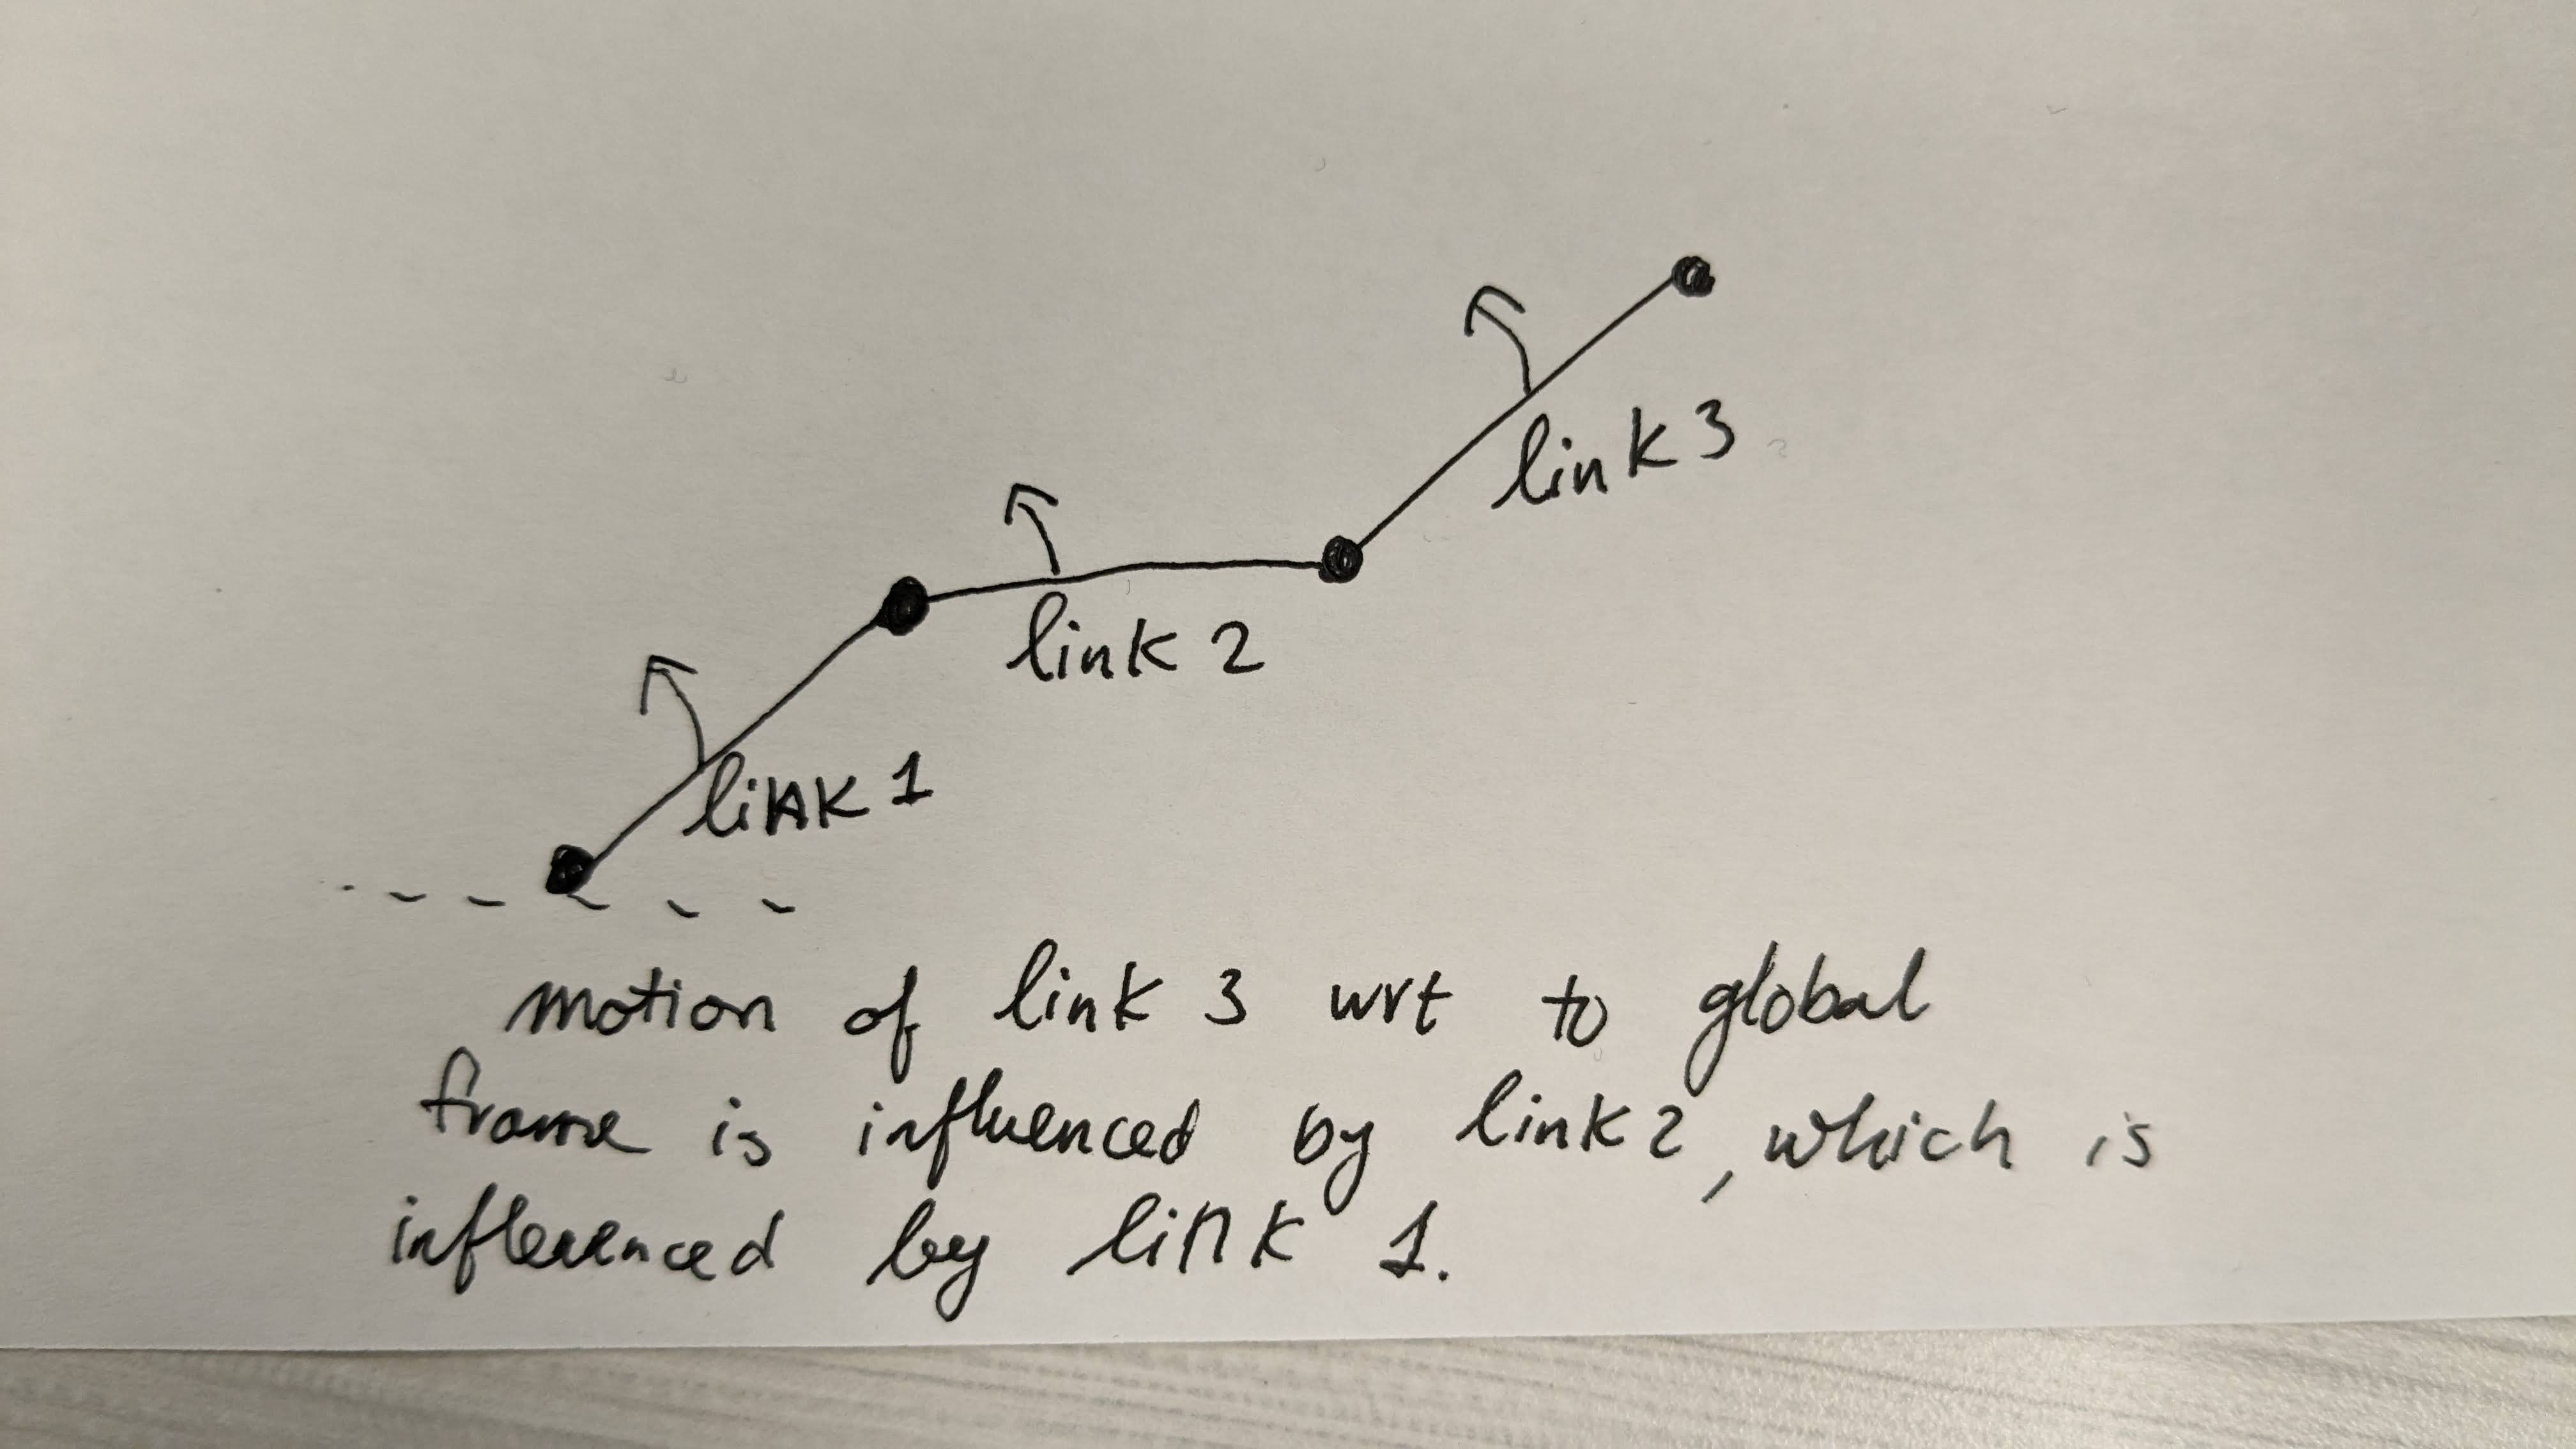 link 3
link 2
link 1
motion of link 3 wrt to global
frame is influenced by link 2, which is
influenced by link 1.